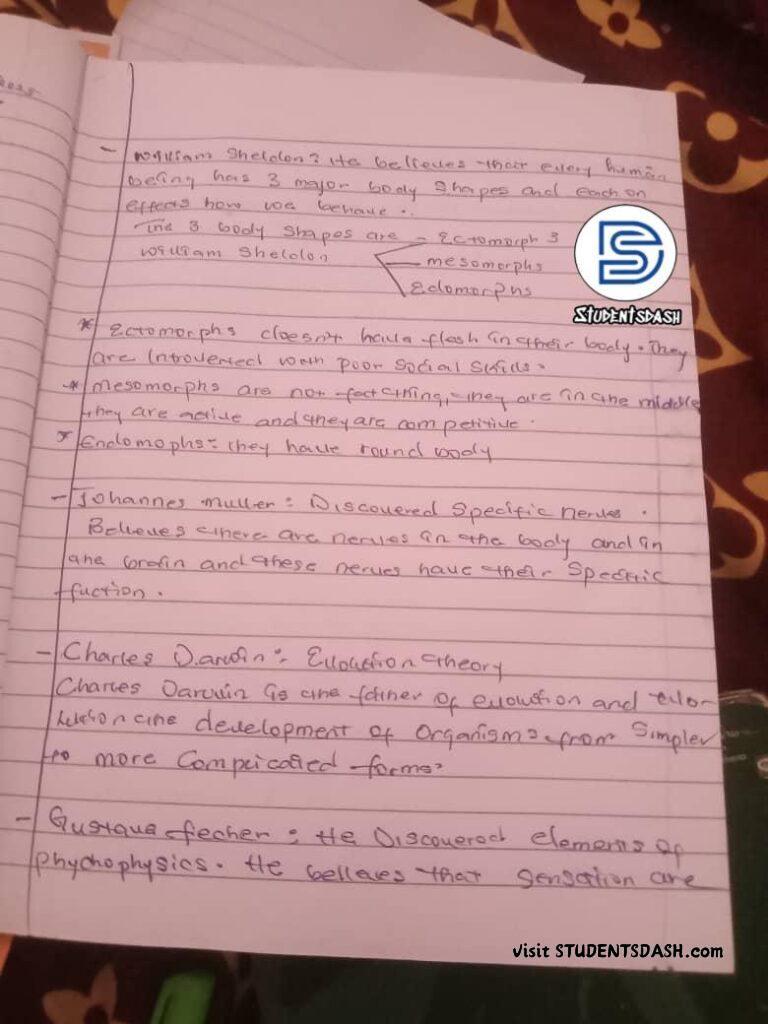 2025
- William Sheldon: He believes that every human
being has 3 major body shapes and each on
effects how we behave..
The 3 body shapes are - Ectomorphs
William Sheldon - mesomorphs
Edomorphs
STUDENTSDASH
* Ectomorphs doesn't have flesh in their body. They
are Introverted with poor Social Skills.
* mesomorphs are not fat thing, they are in the middle
they are active and they are competitive.
* Endomophs: they have round body
- Johannes muller: Discovered Specific nerves.
Believes there are nerves in the body and in
the brain and these nerves have their Specific
fuction.
- Charles Darwin: Evolution theory
Charles Darwin is the father of evolution and evlo-
lution the development of organisms from Simpler
to more Compricated forms.
- Gustave fecher: He Discovered elements of
phychophysics. He believes that Sensation are
visit STUDENTSDASH.com